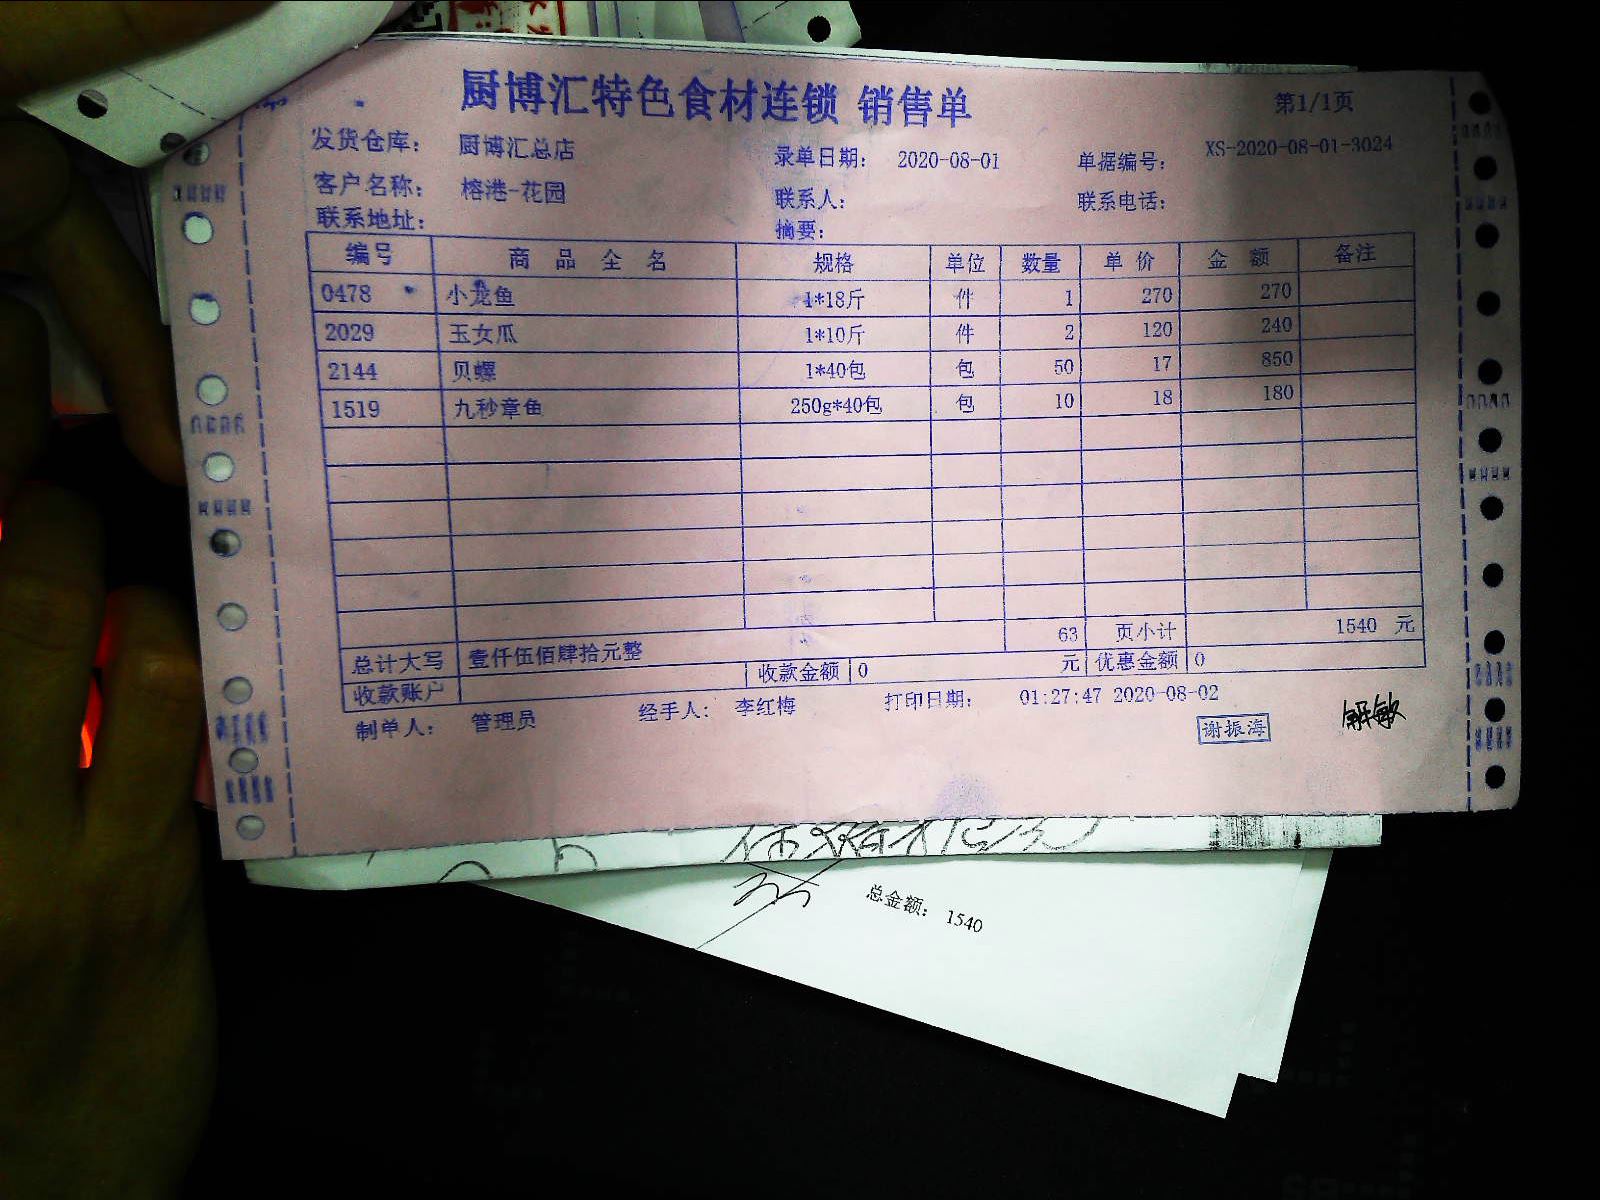 厨博汇特色食材连锁 销售单
第1/1页
发货仓库： 厨博汇总店 录单日期： 2020-08-01 单据编号： XS-2020-08-01-3024
客户名称： 榕港-花园 联系人： 联系电话：
联系地址： 摘要：
编号 商品全名 规格 单位 数量 单价 金额 备注
0478 小龙鱼 1*18斤 件 1 270 270
2029 玉女瓜 1*10斤 件 2 120 240
2144 贝螺 1*40包 包 50 17 850
1519 九秒章鱼 250g*40包 包 10 18 180
63 页小计 1540 元
总计大写 壹仟伍佰肆拾元整
收款账户 收款金额 0 元 优惠金额 0
制单人： 管理员 经手人： 李红梅 打印日期： 01:27:47 2020-08-02
谢振海
总金额： 1540